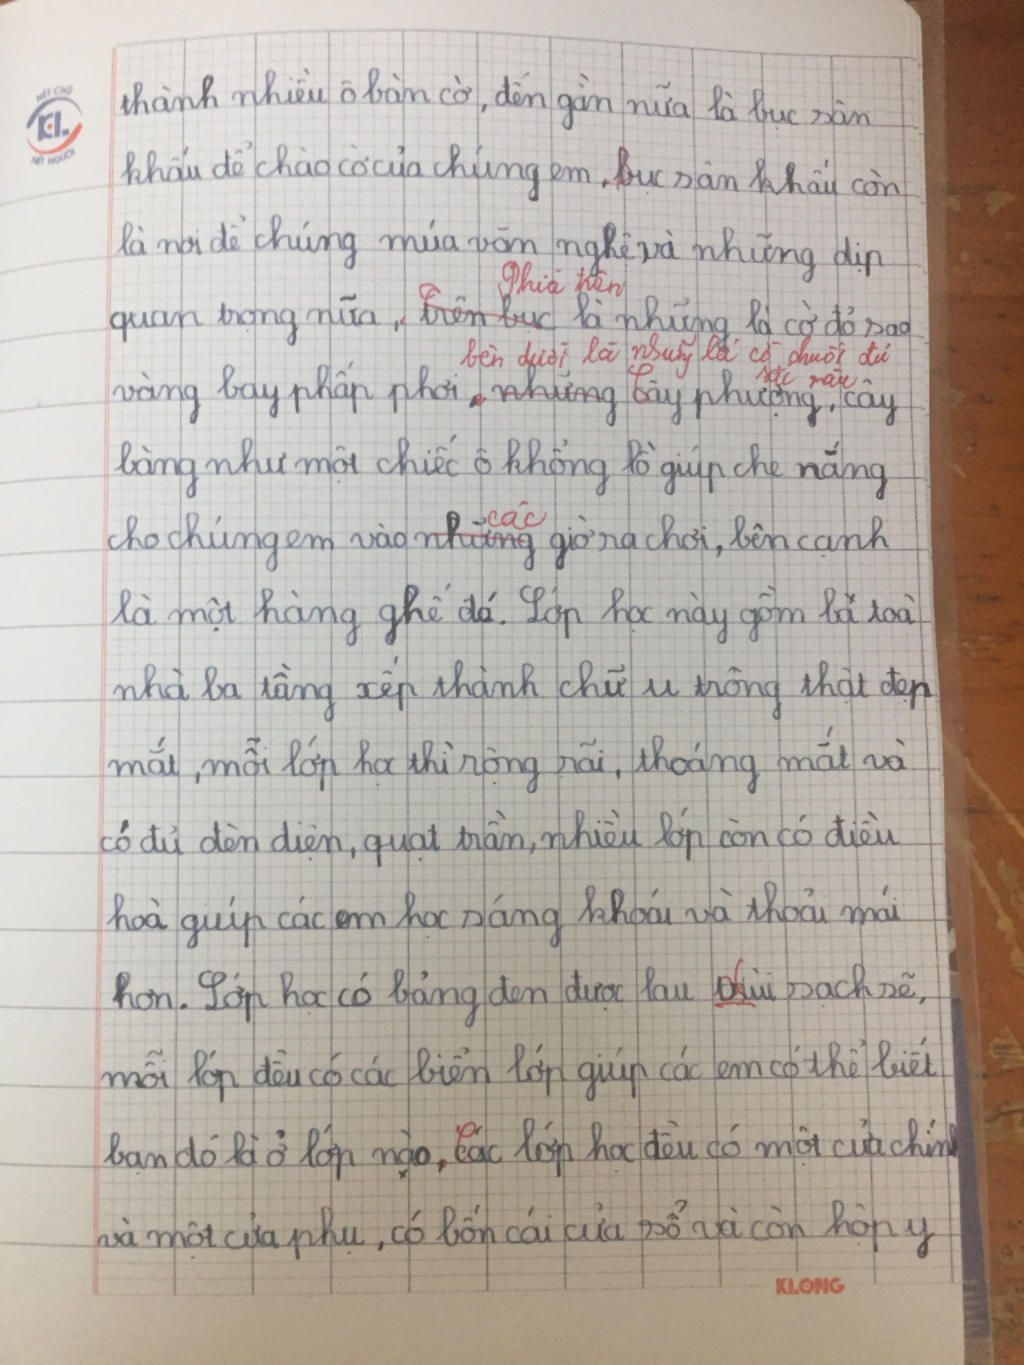 NÉT CHỮ
KL
NẾT NGƯỜI
thành nhiều ô bàn cờ, đến gần nữa là bục sân
khấu để chào cờ của chúng em. Bục sân khấu còn
là nơi để chúng múa văn nghệ và những dịp
Phía trên
quan trọng nữa, trên bục là những lá cờ đỏ sao
bên dưới là những lá cờ đuôi đủ
sắc màu
vàng bay phấp phới. những Cây phượng, cây
bàng như một chiếc ô khổng lồ giúp che nắng
các
cho chúng em vào những giờ ra chơi, bên cạnh
là một hàng ghế đá. Lớp học này gồm ba toà
nhà ba tầng xếp thành chữ u trông thật đẹp
mắt, mỗi lớp học thì rộng rãi, thoáng mát và
có đủ đèn điện, quạt trần, nhiều lớp còn có điều
hoà giúp các em học sáng khoái và thoải mái
hơn. Lớp học có bảng đen được lau chùi sạch sẽ,
mỗi lớp đều có các biển lớp giúp các em có thể biết
bạn đó là ở lớp nào, Các lớp học đều có một cửa chính
và một cửa phụ, có bốn cái cửa sổ và còn hộp y
KLONG